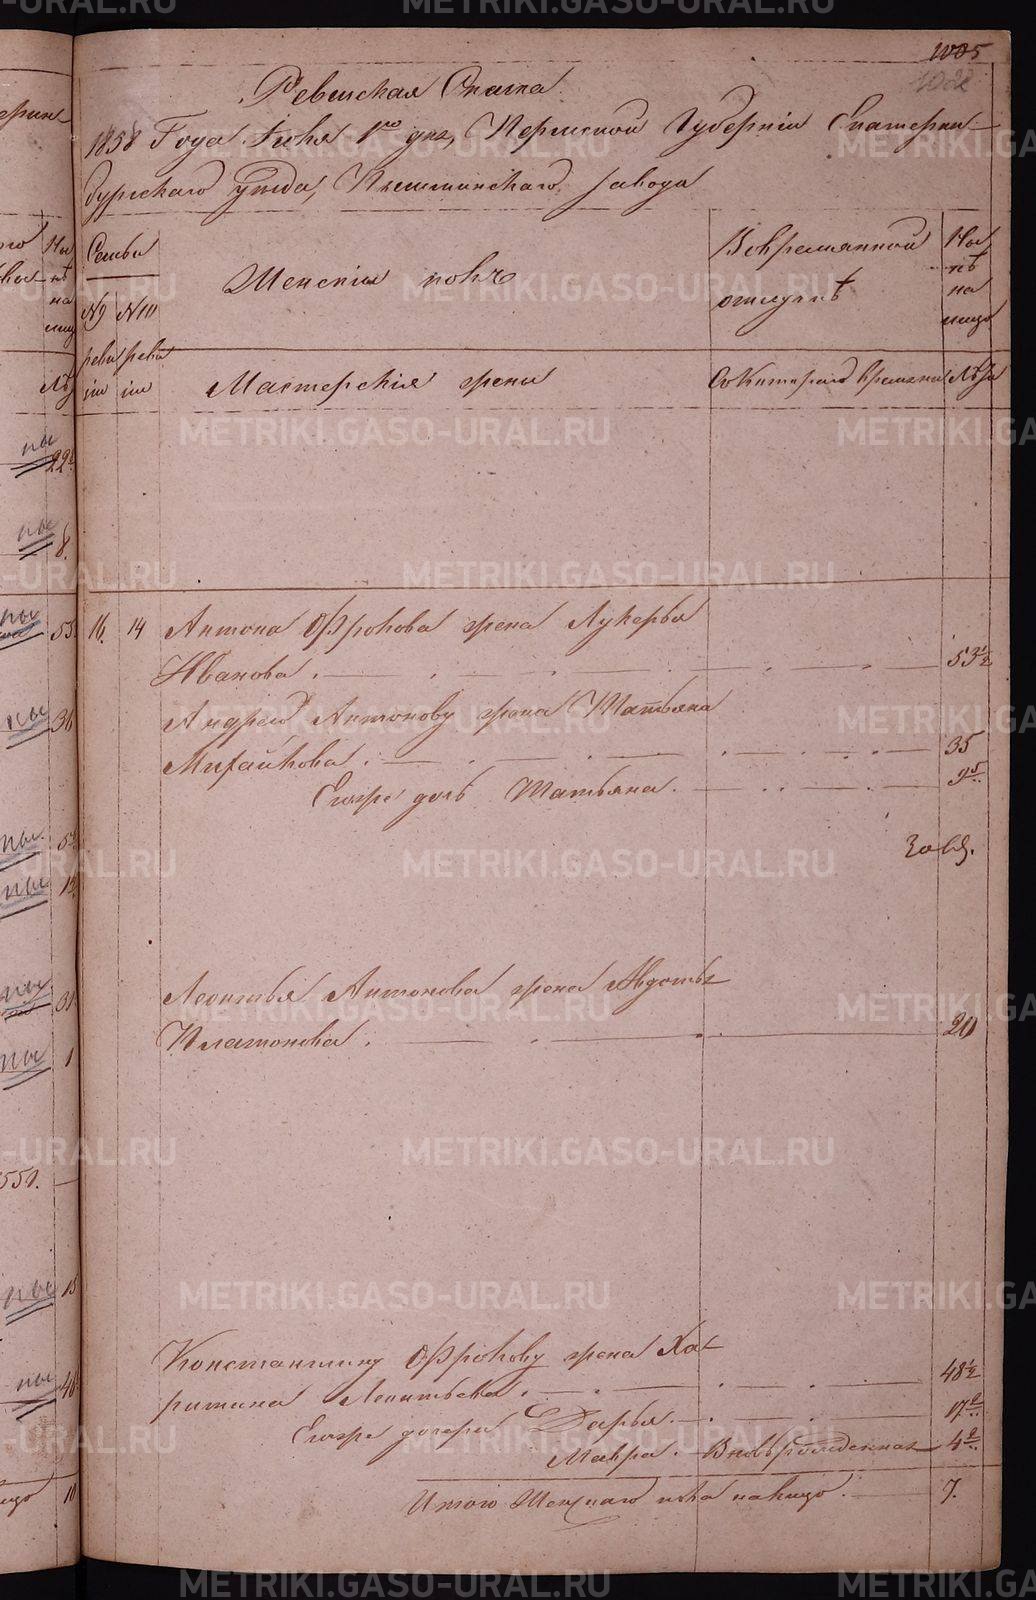 1005
1022
Ревизская Сказка
1858 Года Июня 1го дня, Пермской Губернiи Екатерин-
бургскаго уѣзда, Кыштымскаго завода
Семьи
№9 ревизiи
№10 ревизiи
Женскiй полъ
Вовременной отлучкѣ
Нынѣ на лицо
Мастерскiя жены
Съ котораго времени
Лѣта
16. 14 Антона Фролова жена Лукерья
Иванова. 53½
Андрея Антонову жена Татьяна
Михайлова. 35
Егоже дочь Татьяна. 9
Леонтья Антонова жена Авдотья
Платонова. 20
Константину Фролову жена Ха-
ритина Леонтьева. 48½
Егоже дочери Дарья. 17
Мавра. Вновьрожденная 4
Итого Женскаго пола налицо. 7.
ны
22
ны
8.
ны
55
ны
36
ны
ны
ны
31
ны
1
551.
ны
15
ны
10
METRIKI.GASO-URAL.RU